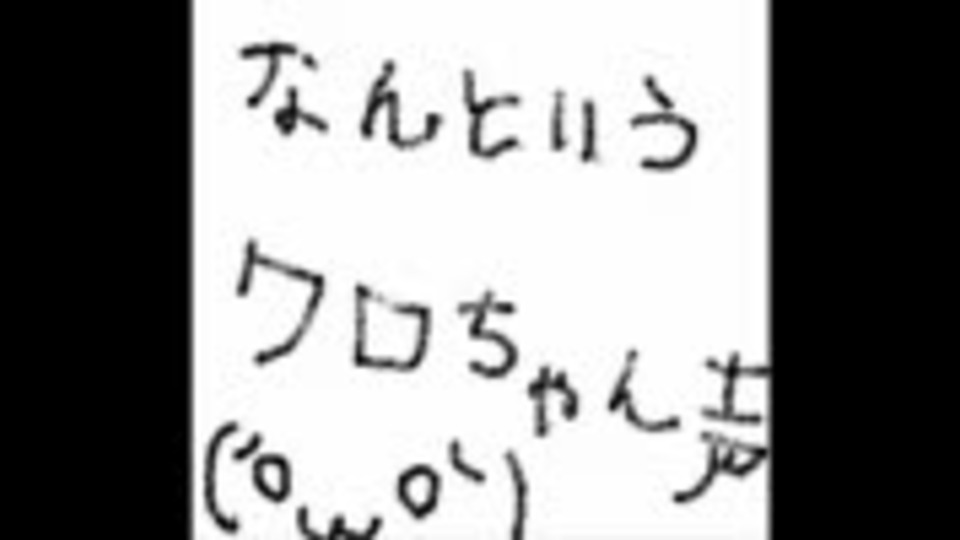 なんという
クロちゃん声
('o ω o`)